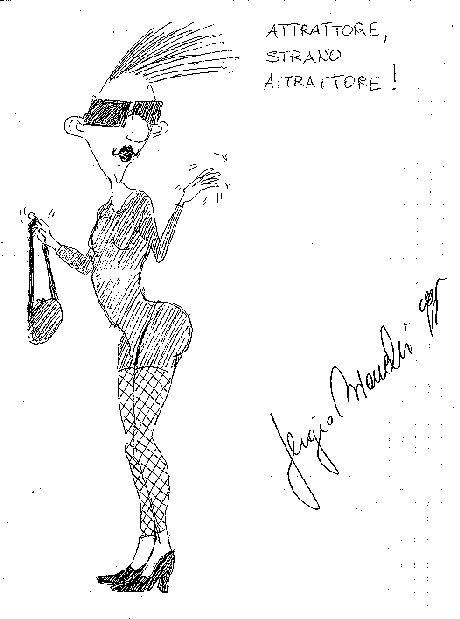 ATTRATTORE,
STRANO
ATTRATTORE!
Sergio